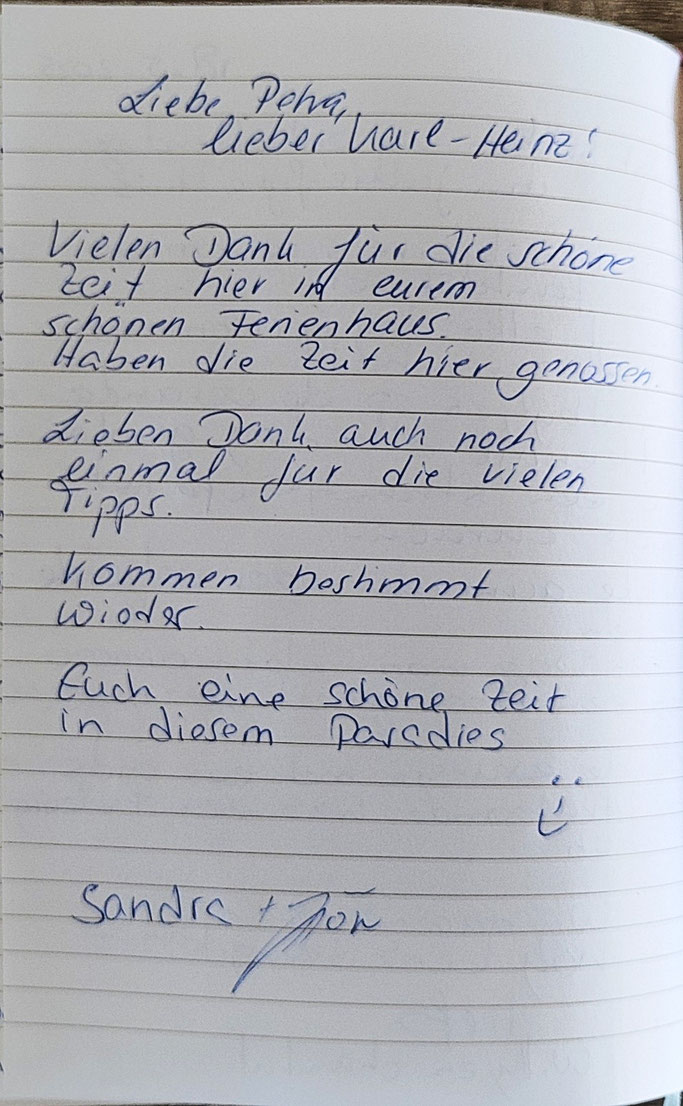 Liebe Petra,
lieber Karl-Heinz!
Vielen Dank für die schöne
Zeit hier in eurem
schönen Ferienhaus.
Haben die Zeit hier genossen.
Lieben Dank auch noch
einmal für die vielen
Tipps.
Kommen bestimmt
wieder.
Euch eine schöne Zeit
in diesem Paradies
Sandra + Jörn